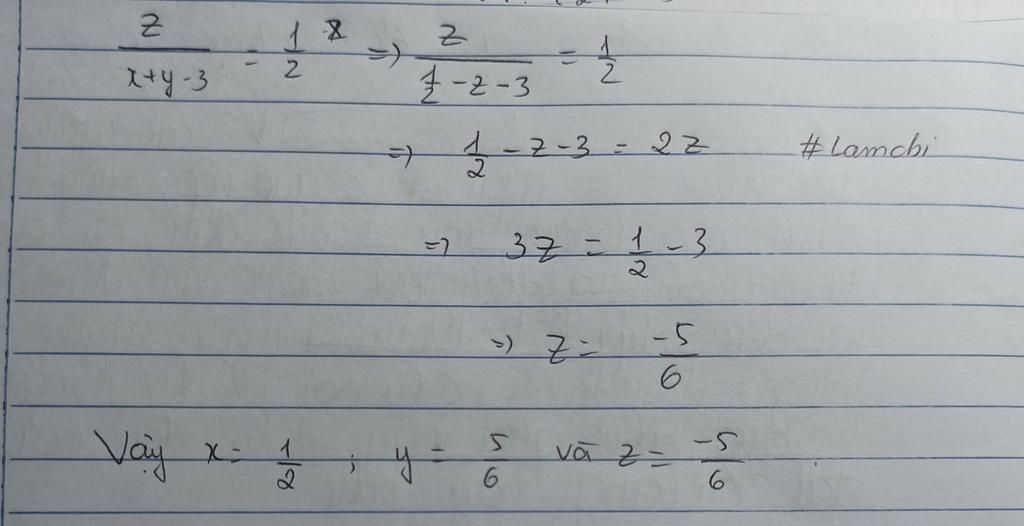 z/(x+y-3) = 1/2 => z/(1/2 - z - 3) = 1/2
=> 1/2 - z - 3 = 2z #Lamchi
=> 3z = 1/2 - 3
=> z = -5/6
Vậy x = 1/2 ; y = 5/6 và z = -5/6 .